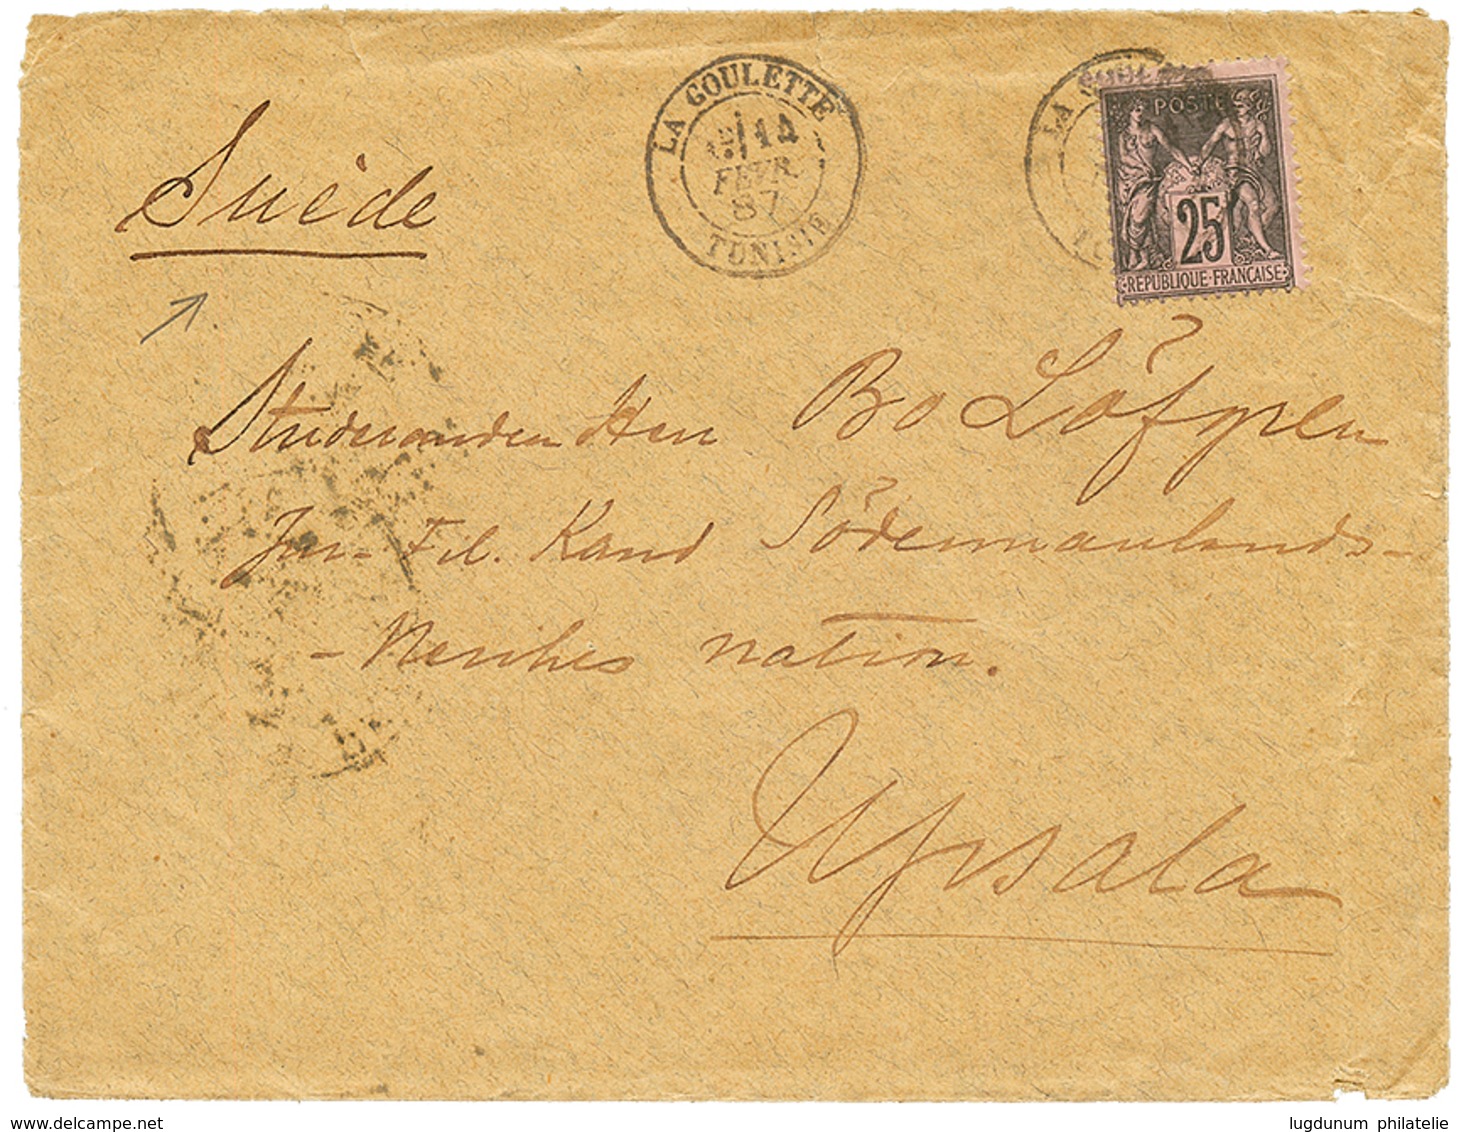 LA GOULETTE
14
FEVR.
87
TUNISIE
LA GOULETTE
POSTE
25
REPUBLIQUE FRANÇAISE
Suède
Studeranden Herr Bo Löfgren
Jur- Fil. Kand Södermanlands-
- Nerikes nation.
Upsala
lugdunum philatelie